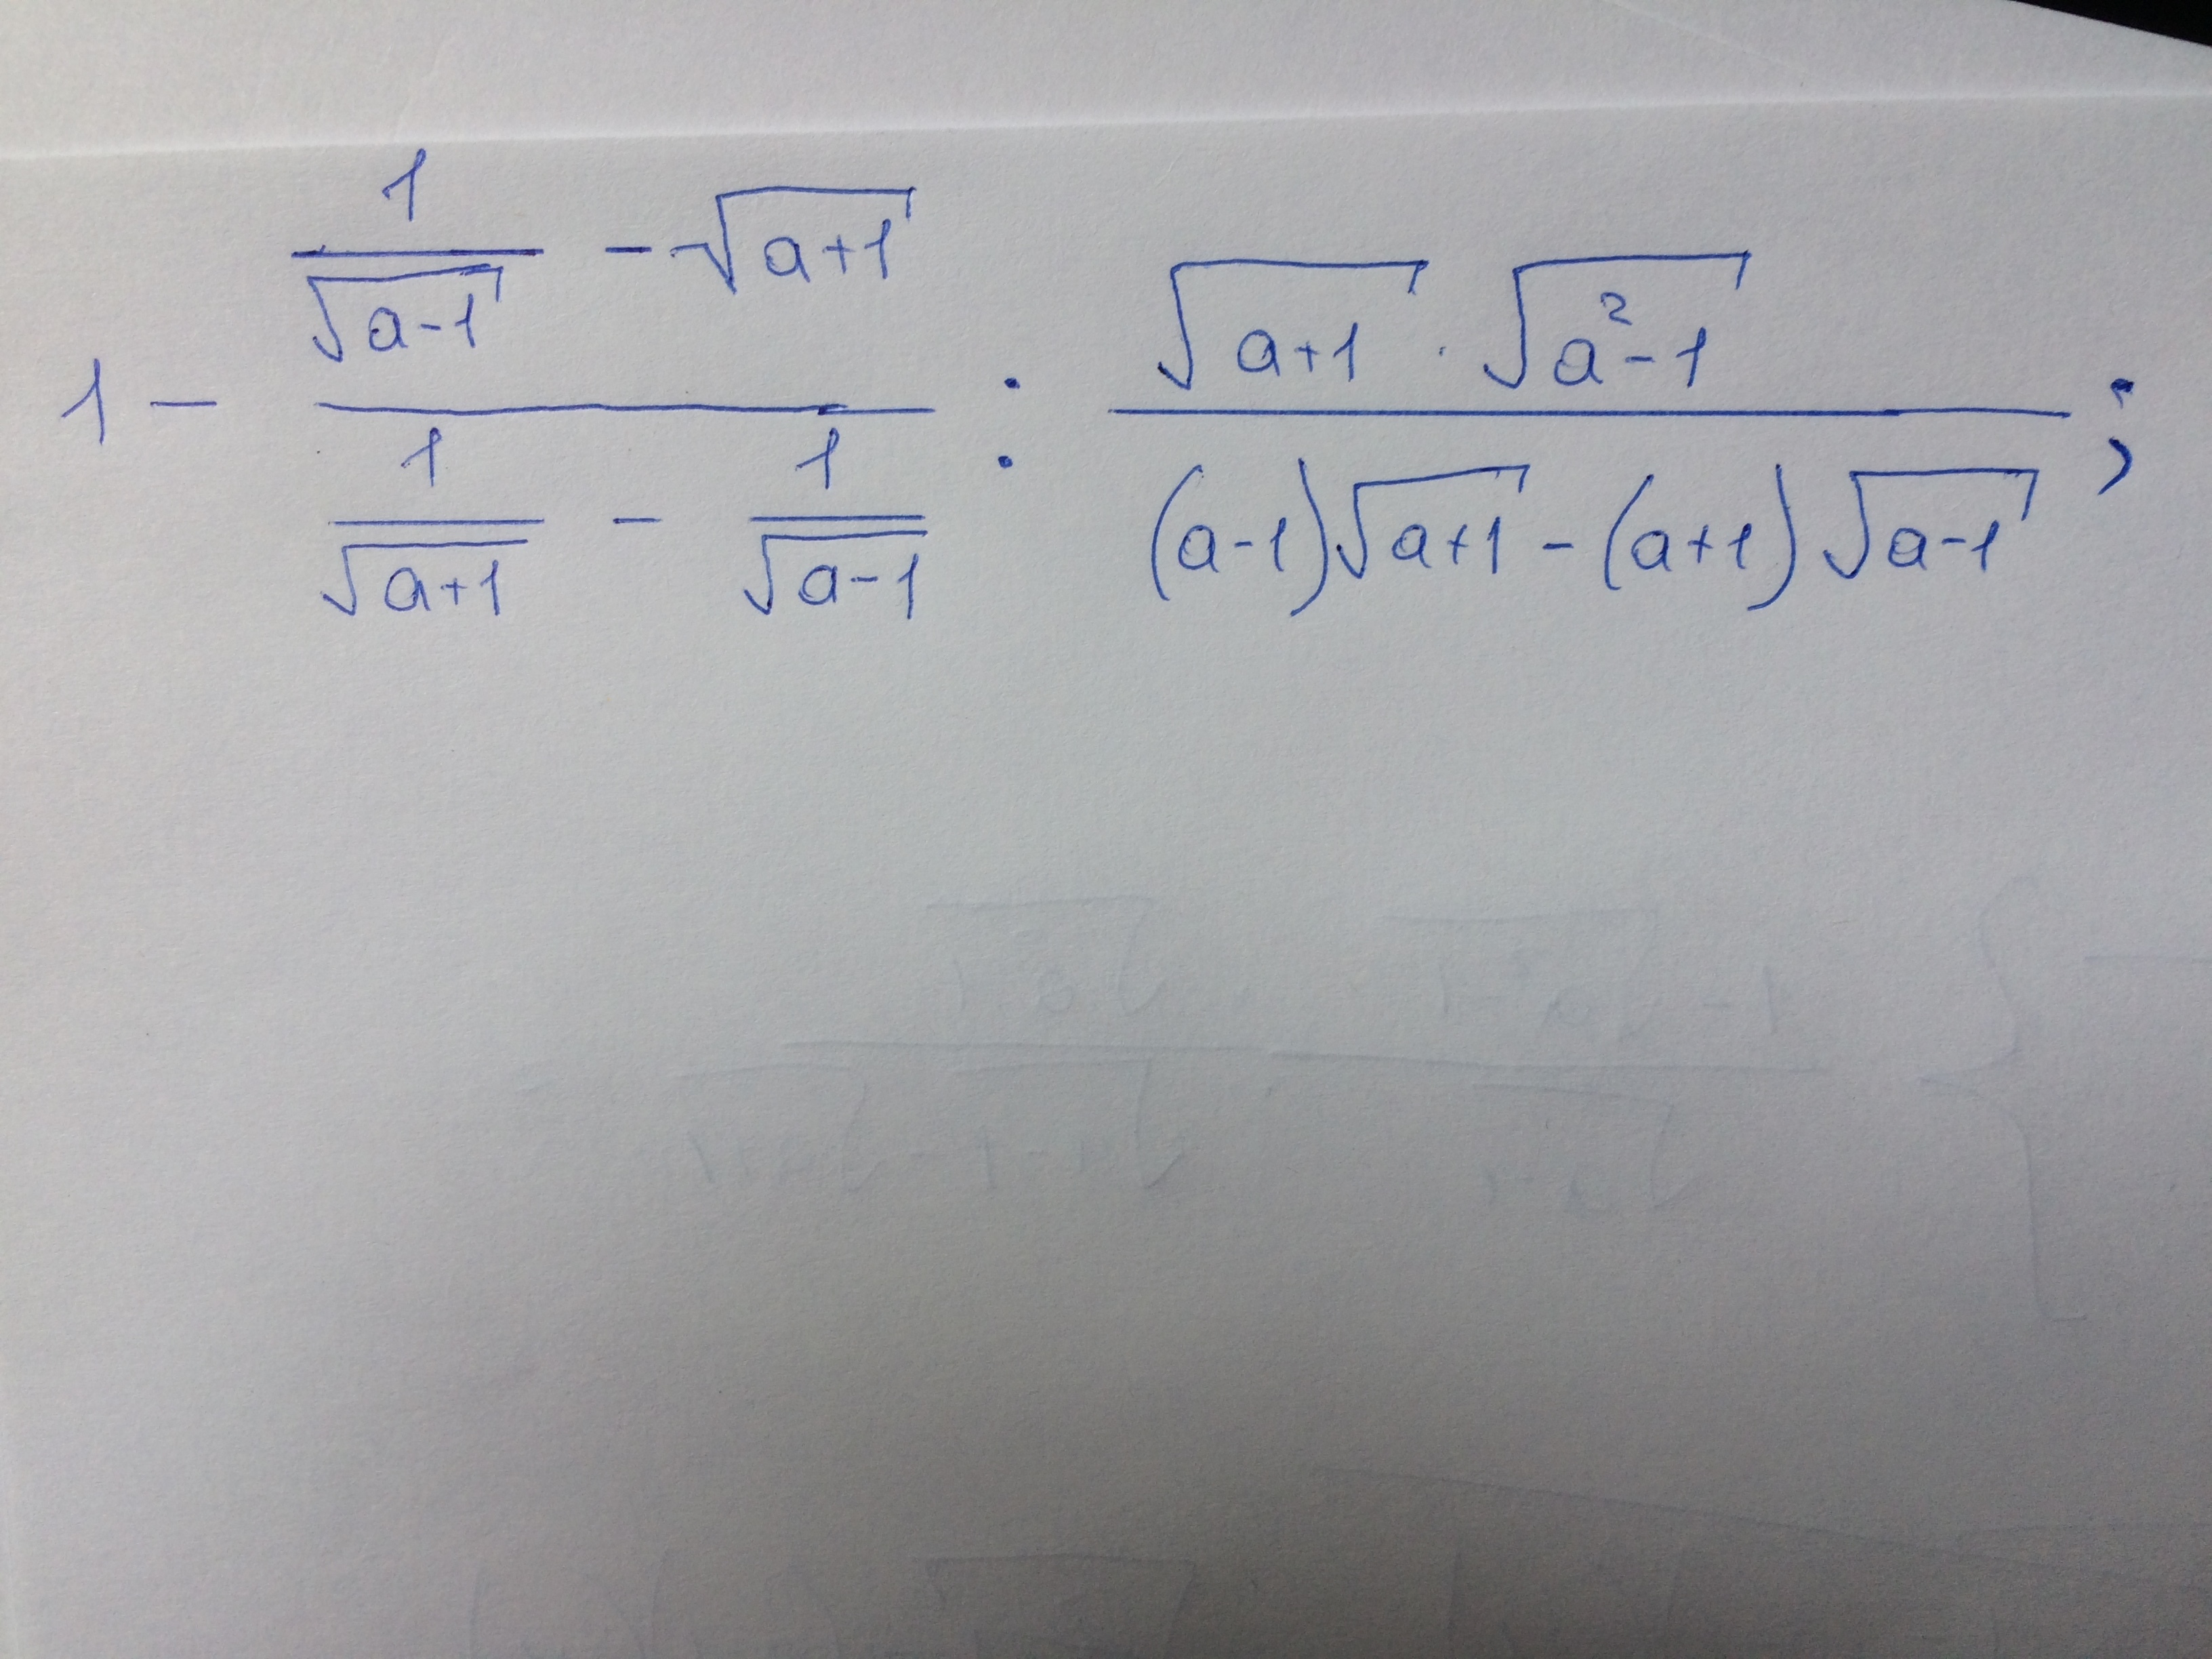 1 - \frac{\frac{1}{\sqrt{a-1}} - \sqrt{a+1}}{\frac{1}{\sqrt{a+1}} - \frac{1}{\sqrt{a-1}}} : \frac{\sqrt{a+1} \cdot \sqrt{a^2-1}}{(a-1)\sqrt{a+1} - (a+1)\sqrt{a-1}} ;